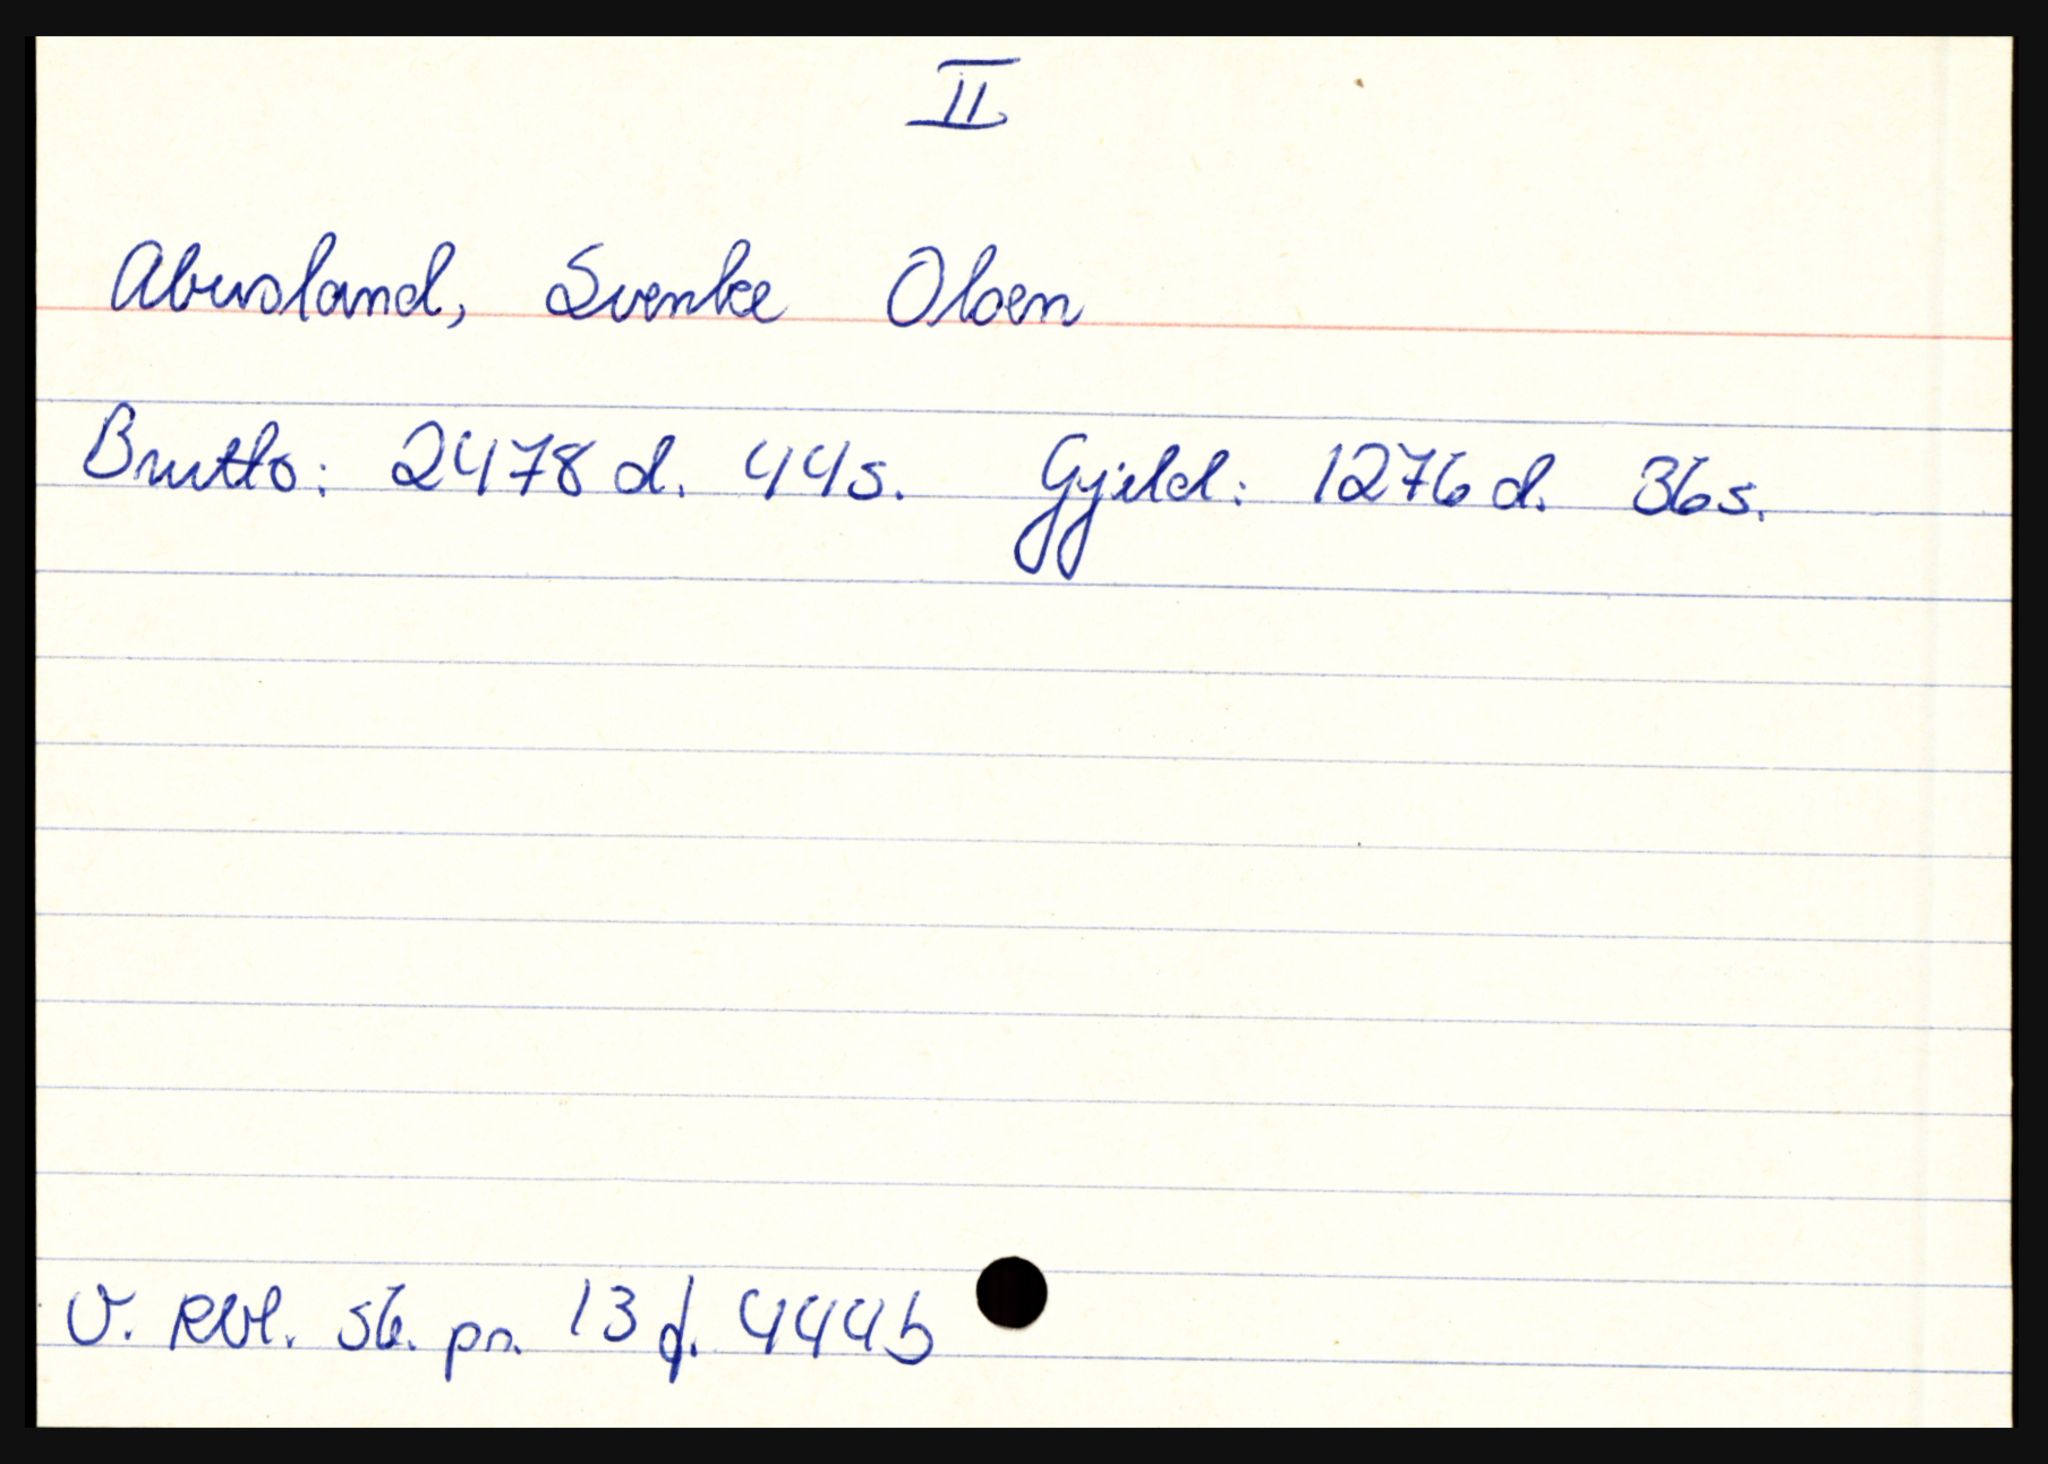 II
Abusland, Svenke Olsen
Brutto: 2478 d. 44 s. Gjeld: 1276 d. 36 s.
V. RVl. sk. pr. 13 f. 444b